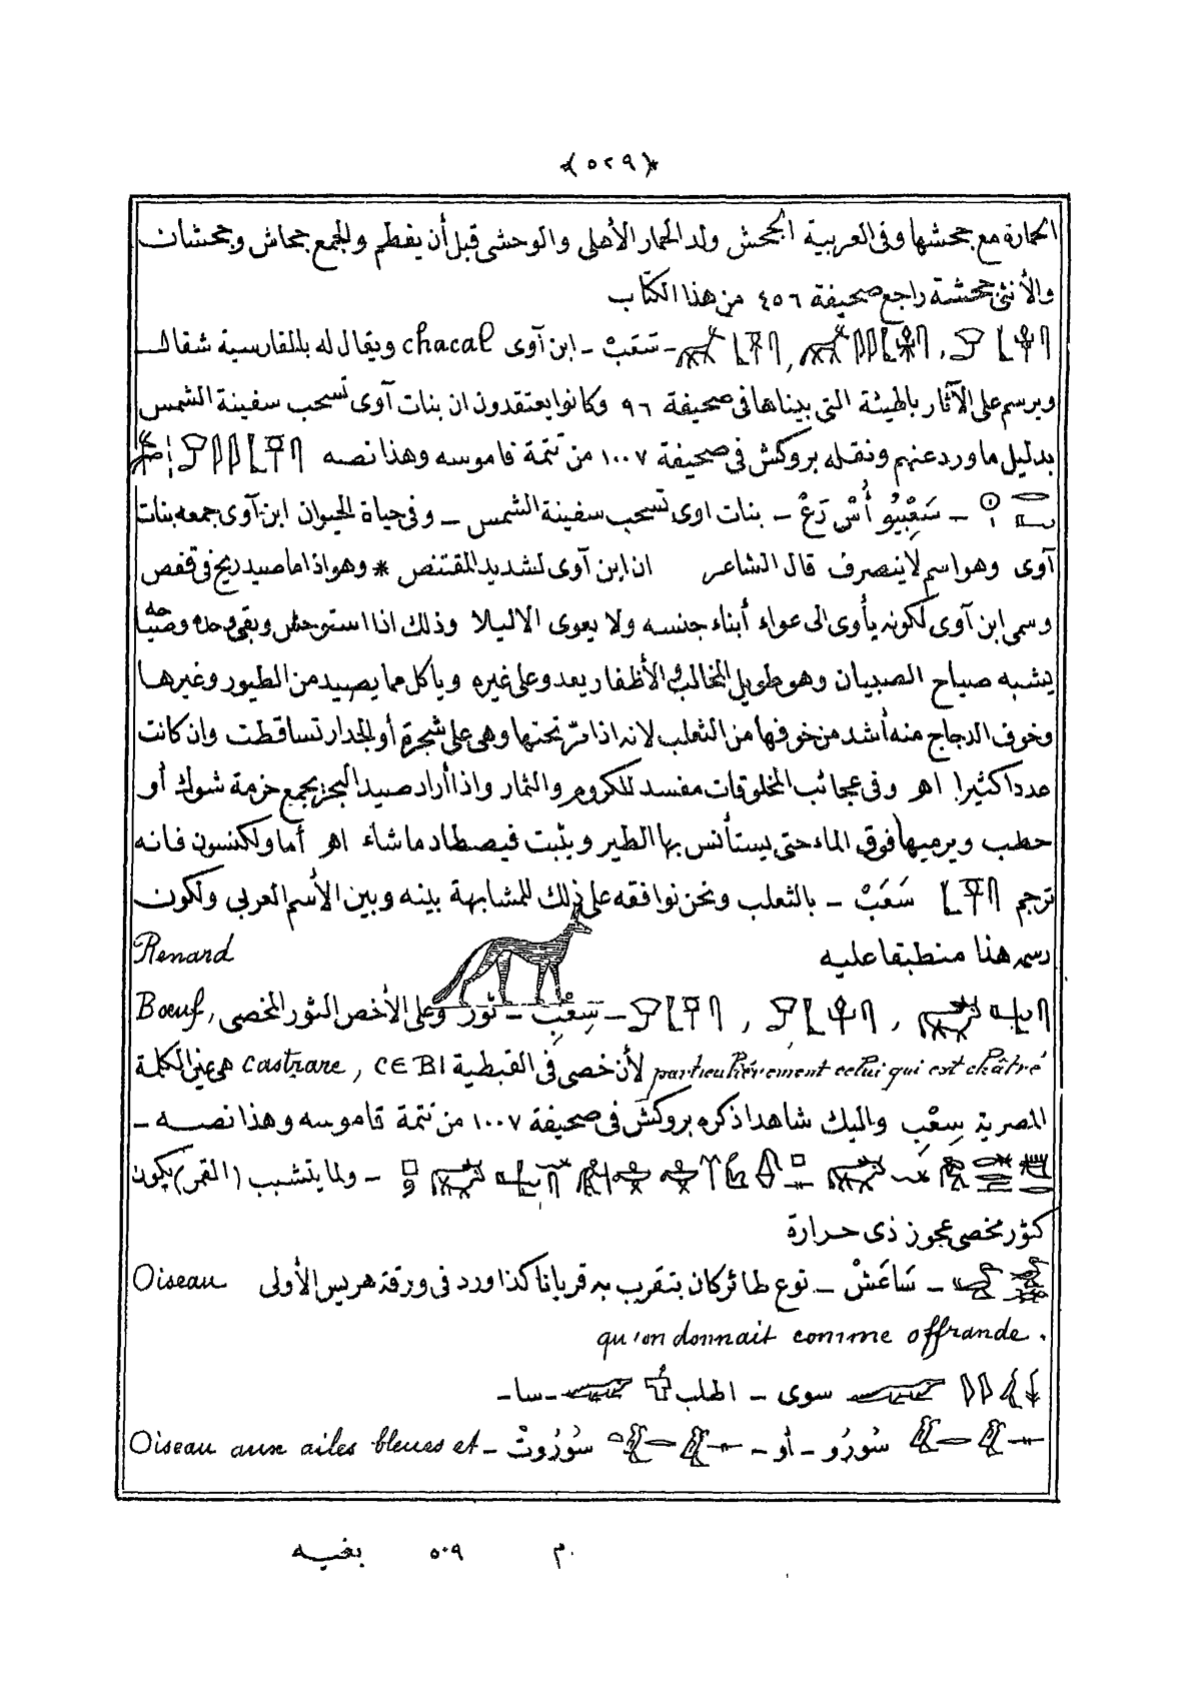 ﴿٥٢٩﴾
الحمارة مع جحشها وفى العربية الجحش ولد الحمار الأهلى والوحشى قبل أن يفطم والجمع جحاش وجحشات
والأنثى جحشة راجع صحيفة ٤٥٦ من هذا الكتاب
سَعَبْ - ابن آوى chacal ويقال له بالفارسية شقال
ويرسم على الآثار بالهيئة التى بيناها فى صحيفة ٩٦ وكانوا يعتقدون ان بنات آوى تسحب سفينة الشمس
بدليل ما ورد عنهم ونقله بروكش فى صحيفة ١٠٠٧ من تتمة قاموسه وهذا نصه
سَعْبِيُو أُسْ رَعْ - بنات اوى تسحب سفينة الشمس - وفى حياة الحيوان ابن آوى جمعه بنات
آوى وهو اسم لا ينصرف قال الشاعر ان ابن آوى لشديد المقتنص * وهو اذا ما صيد ريح فى قفص
وسمى ابن آوى لكونه يأوى الى عواء أبناء جنسه ولا يعوى الا ليلا وذلك اذا استوحش وبقى وحده وصياحه
يشبه صياح الصبيان وهو طويل المخالب والأظفار يعدو على غيره وياكل مما يصيد من الطيور وغيرها
وخوف الدجاج منه أشد من خوفها من الثعلب لانه اذا مرّ تحتها وهى على شجرة أو الجدار تساقطت وان كانت
عددا كثيرا اهـ وفى عجائب المخلوقات مفسد للكروم والثمار واذا أراد صيد البحر يجمع حزمة شوك أو
حطب ويرميها فوق الماء حتى يستأنس بها الطير ويثبت فيصطاد ما شاء اهـ أما ولكنسون فانه
ترجم سَعَبْ - بالثعلب ونحن نوافقه على ذلك للمشابهة بينه وبين الأسم العربى ولكون
رسمه هذا منطبقا عليه Renard
سِعْبِ - ثور وعلى الأخص الثور المخصى Bœuf,
particulièrement celui qui est châtré لأن خصى فى القبطية castrare, ⲤⲈⲂⲒ هى عين الكلمة
المصرية سِعْبِ واليك شاهدا ذكره بروكش فى صحيفة ١٠٠٧ من تتمة قاموسه وهذا نصه -
- ولما يتشبب (القمر) يكون
كثور مخصى عجوز ذى حرارة
- سَاعَشْ - نوع طائر كان يتقرب به قربانا كذا ورد فى ورقة هريس الأولى Oiseau
qu'on donnait comme offrande.
سوى - الهلب - سا -
سُورُو - أو - سُورُوتْ - Oiseau aux ailes bleues et
م ٥٠٩ بغيه